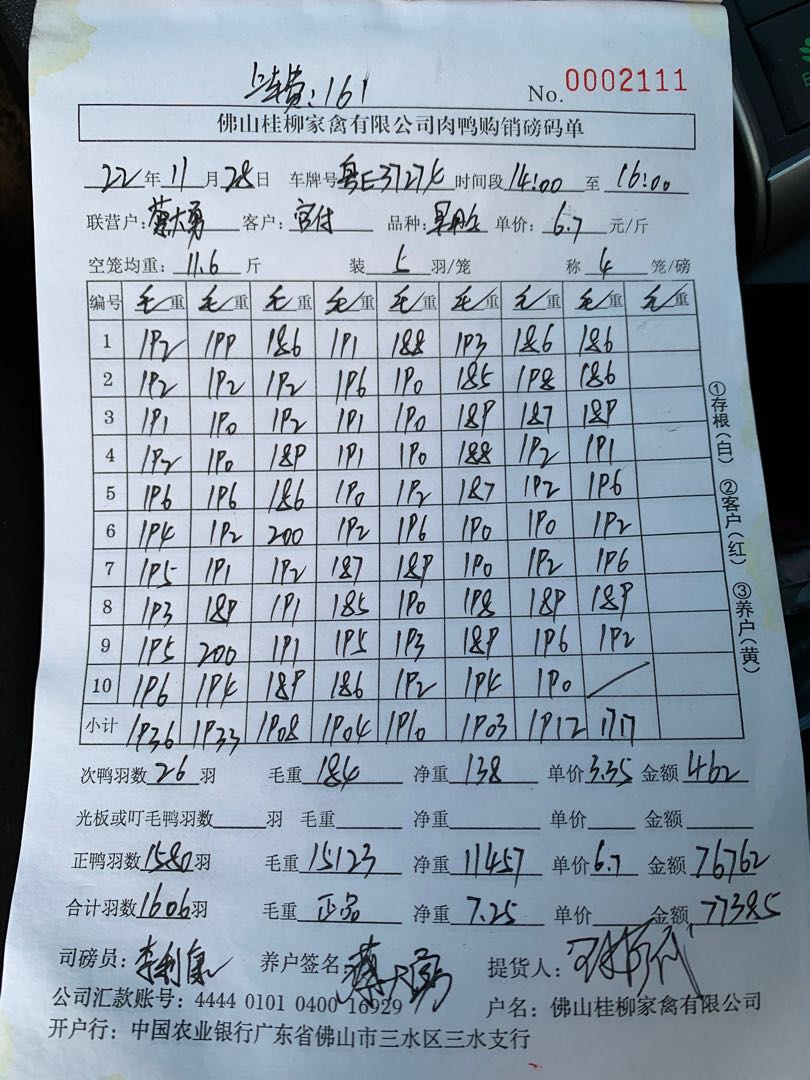 上车费:161
No. 0002111
佛山桂柳家禽有限公司肉鸭购销磅码单
22年11月28日 车牌号粤E3727K 时间段14:00至16:00
联营户:蔡大勇 客户:宫付 品种: 单价:6.7元/斤
空笼均重:11.6斤 装5羽/笼 称4笼/磅
编号 毛重 毛重 毛重 毛重 毛重 毛重 毛重 毛重 毛重
1 192 199 186 191 188 193 186 186
2 192 192 192 196 190 185 198 186
3 191 190 192 191 190 189 187 189
4 192 190 189 191 190 188 192 191
5 196 196 186 190 192 187 192 196
6 194 192 200 192 196 190 190 192
7 195 191 192 187 189 190 192 196
8 193 189 191 185 190 198 189 189
9 195 200 191 195 193 189 196 192
10 196 194 189 186 192 194 190 /
小计 1936 1933 1908 1904 1910 1903 1912 1717
①存根(白) ②客户(红) ③养户(黄)
次鸭羽数26羽 毛重184 净重138 单价3.35 金额462
光板或叮毛鸭羽数 羽 毛重 净重 单价 金额
正鸭羽数1580羽 毛重15123 净重11457 单价6.7 金额76762
合计羽数1606羽 毛重正品 净重7.25 单价 金额77385
司磅员:李利 养户签名:蔡大勇 提货人:
公司汇款账号:4444 0101 0400 16929 户名:佛山桂柳家禽有限公司
开户行:中国农业银行广东省佛山市三水区三水支行